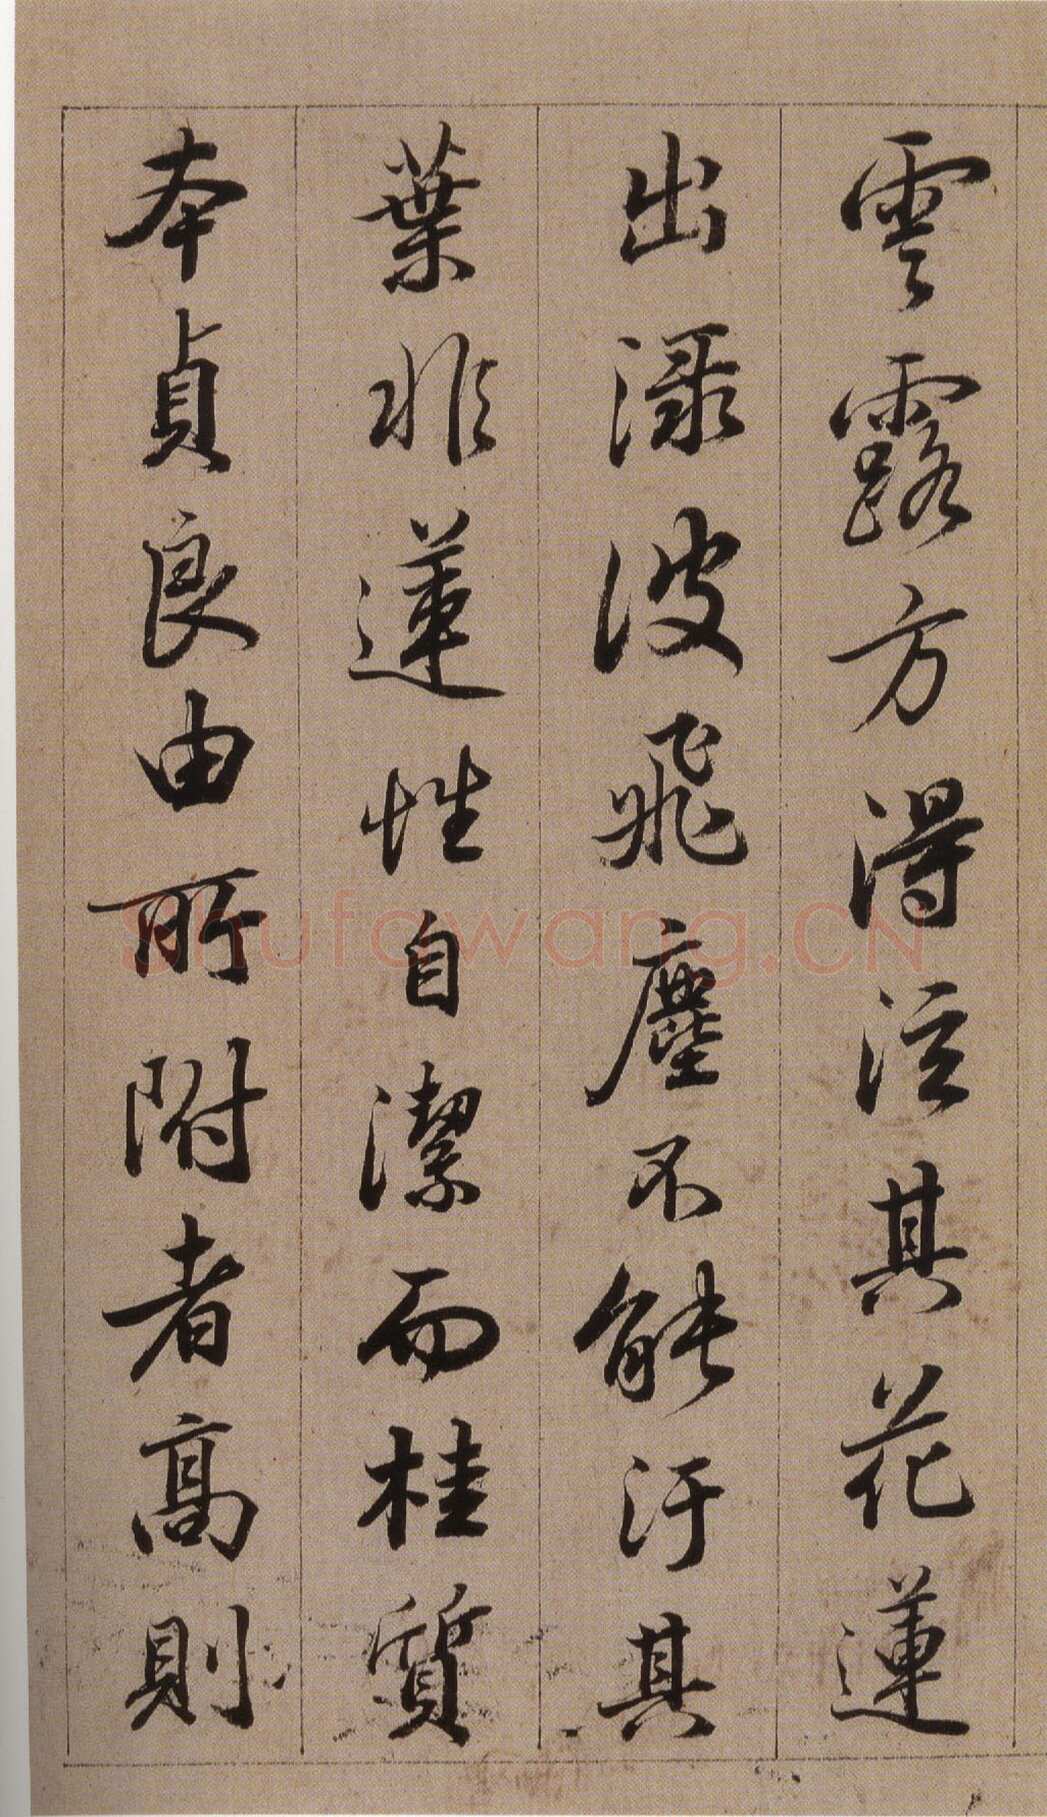 雲露方得泫其花蓮
出渌波飛塵不能汙其
葉非蓮性自潔而桂質
本貞良由所附者高則
Shufawang.CN